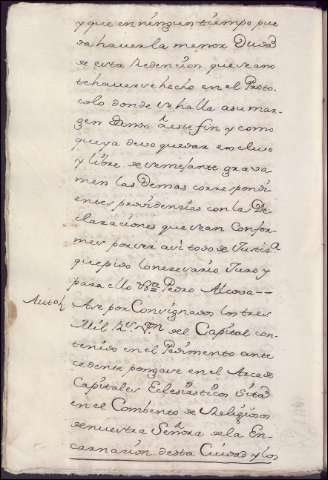 y que en ningun tiempo pue
da haver la menor Duda
de esta Redencion que se ano
te haverse hecho en el Proto
colo donde se halla a su mar-
gen dando a este fin y como
que ya deve quedar excluso
y libre de semejante grava
men las Demas correspondi
entes providencias con las De
claraciones que sean Confor
mes por ser asi todo de Justicia
que pido lo necesario Juro y
para ello &c Pedro Alcosa
Auto Ase por Consignados los tres
Mil Rs Vn del Capital con
tenido en el Pedimento ante
cedente pongase en el Arca de
Capitales Eclesiasticos Sita
en el Combento de Religiosas
de nuestra Señora de la En
carnacion desta Ciudad y los